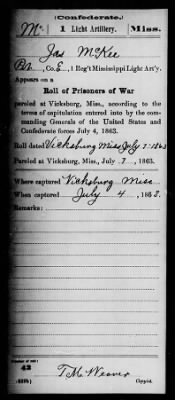 (Confederate.)
Mc 1 Light Artillery. Miss.
Jas McKee
Pvt, Co. E, 1 Reg't Mississippi Light Art'y.
Appears on a
Roll of Prisoners of War
paroled at Vicksburg, Miss., according to the
terms of capitulation entered into by the com-
manding Generals of the United States and
Confederate forces July 4, 1863.
Roll dated Vicksburg Miss July 7, 1863
Paroled at Vicksburg, Miss., July 7, 1863.
Where captured Vicksburg Miss
When captured July 4, 1863.
Remarks:
Number of roll:
43
T. M. Weaver
Copyist.